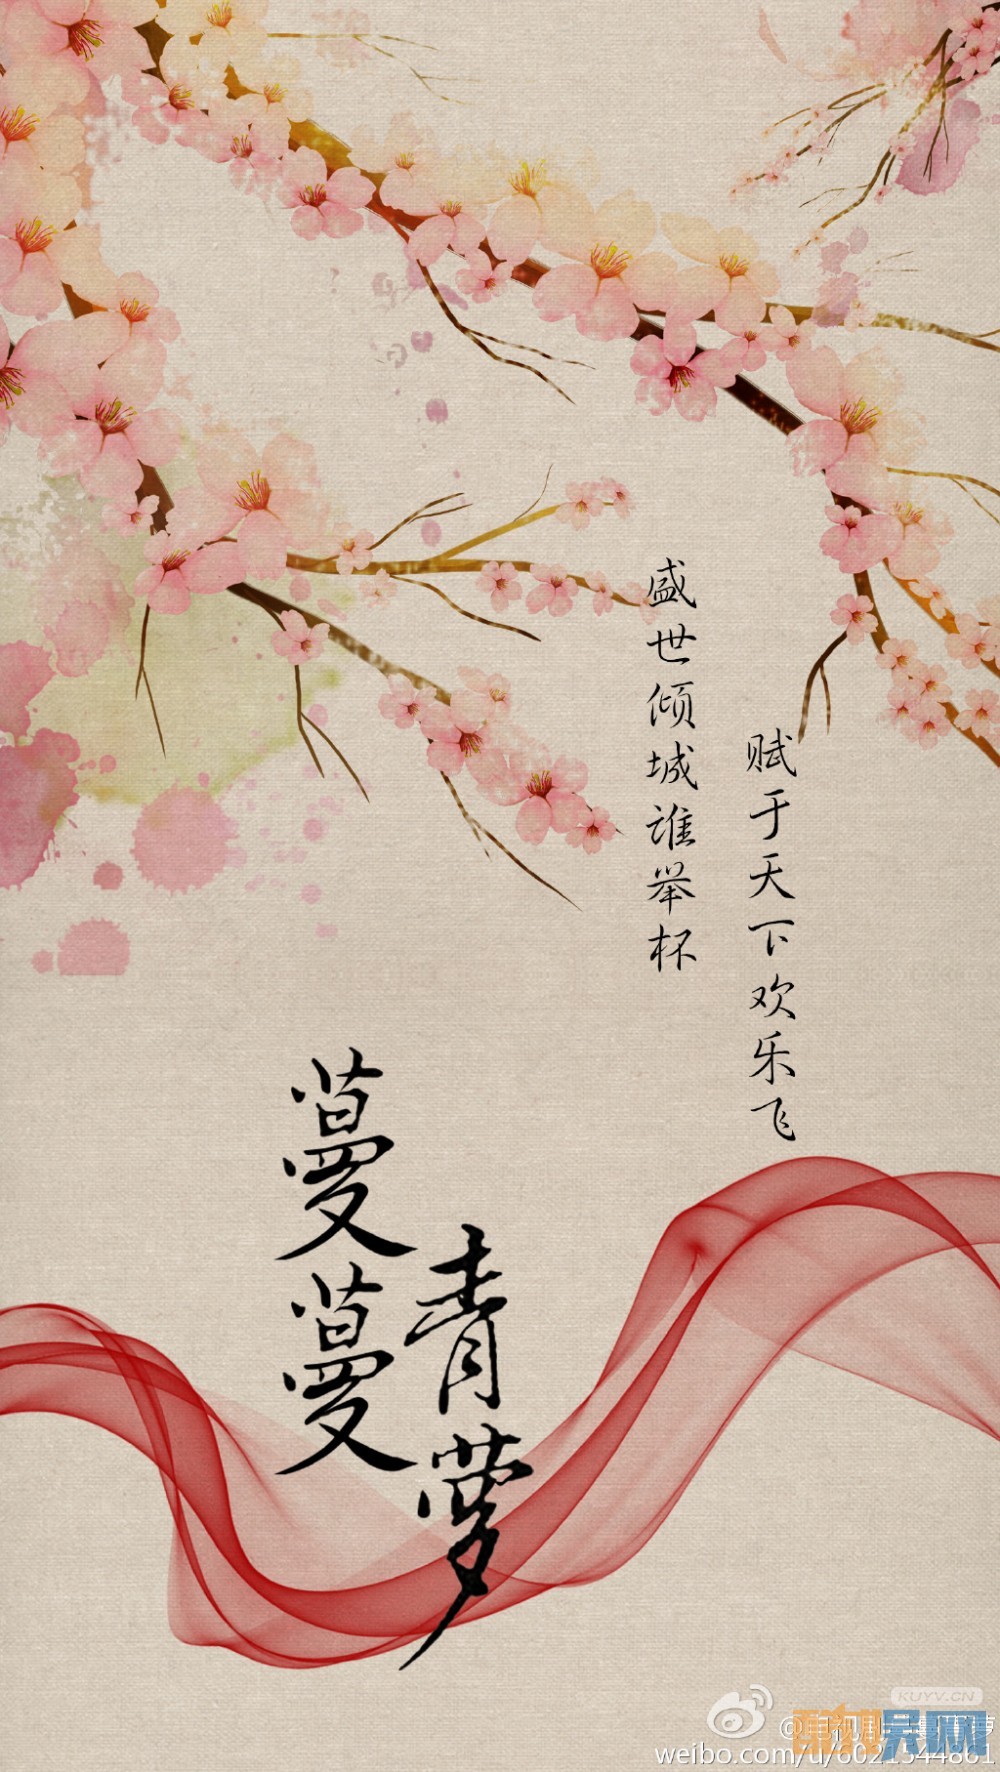 赋于天下欢乐飞
盛世倾城谁举杯
蔓蔓
青萝
KUYV.CN
weibo.com/u/6021544861